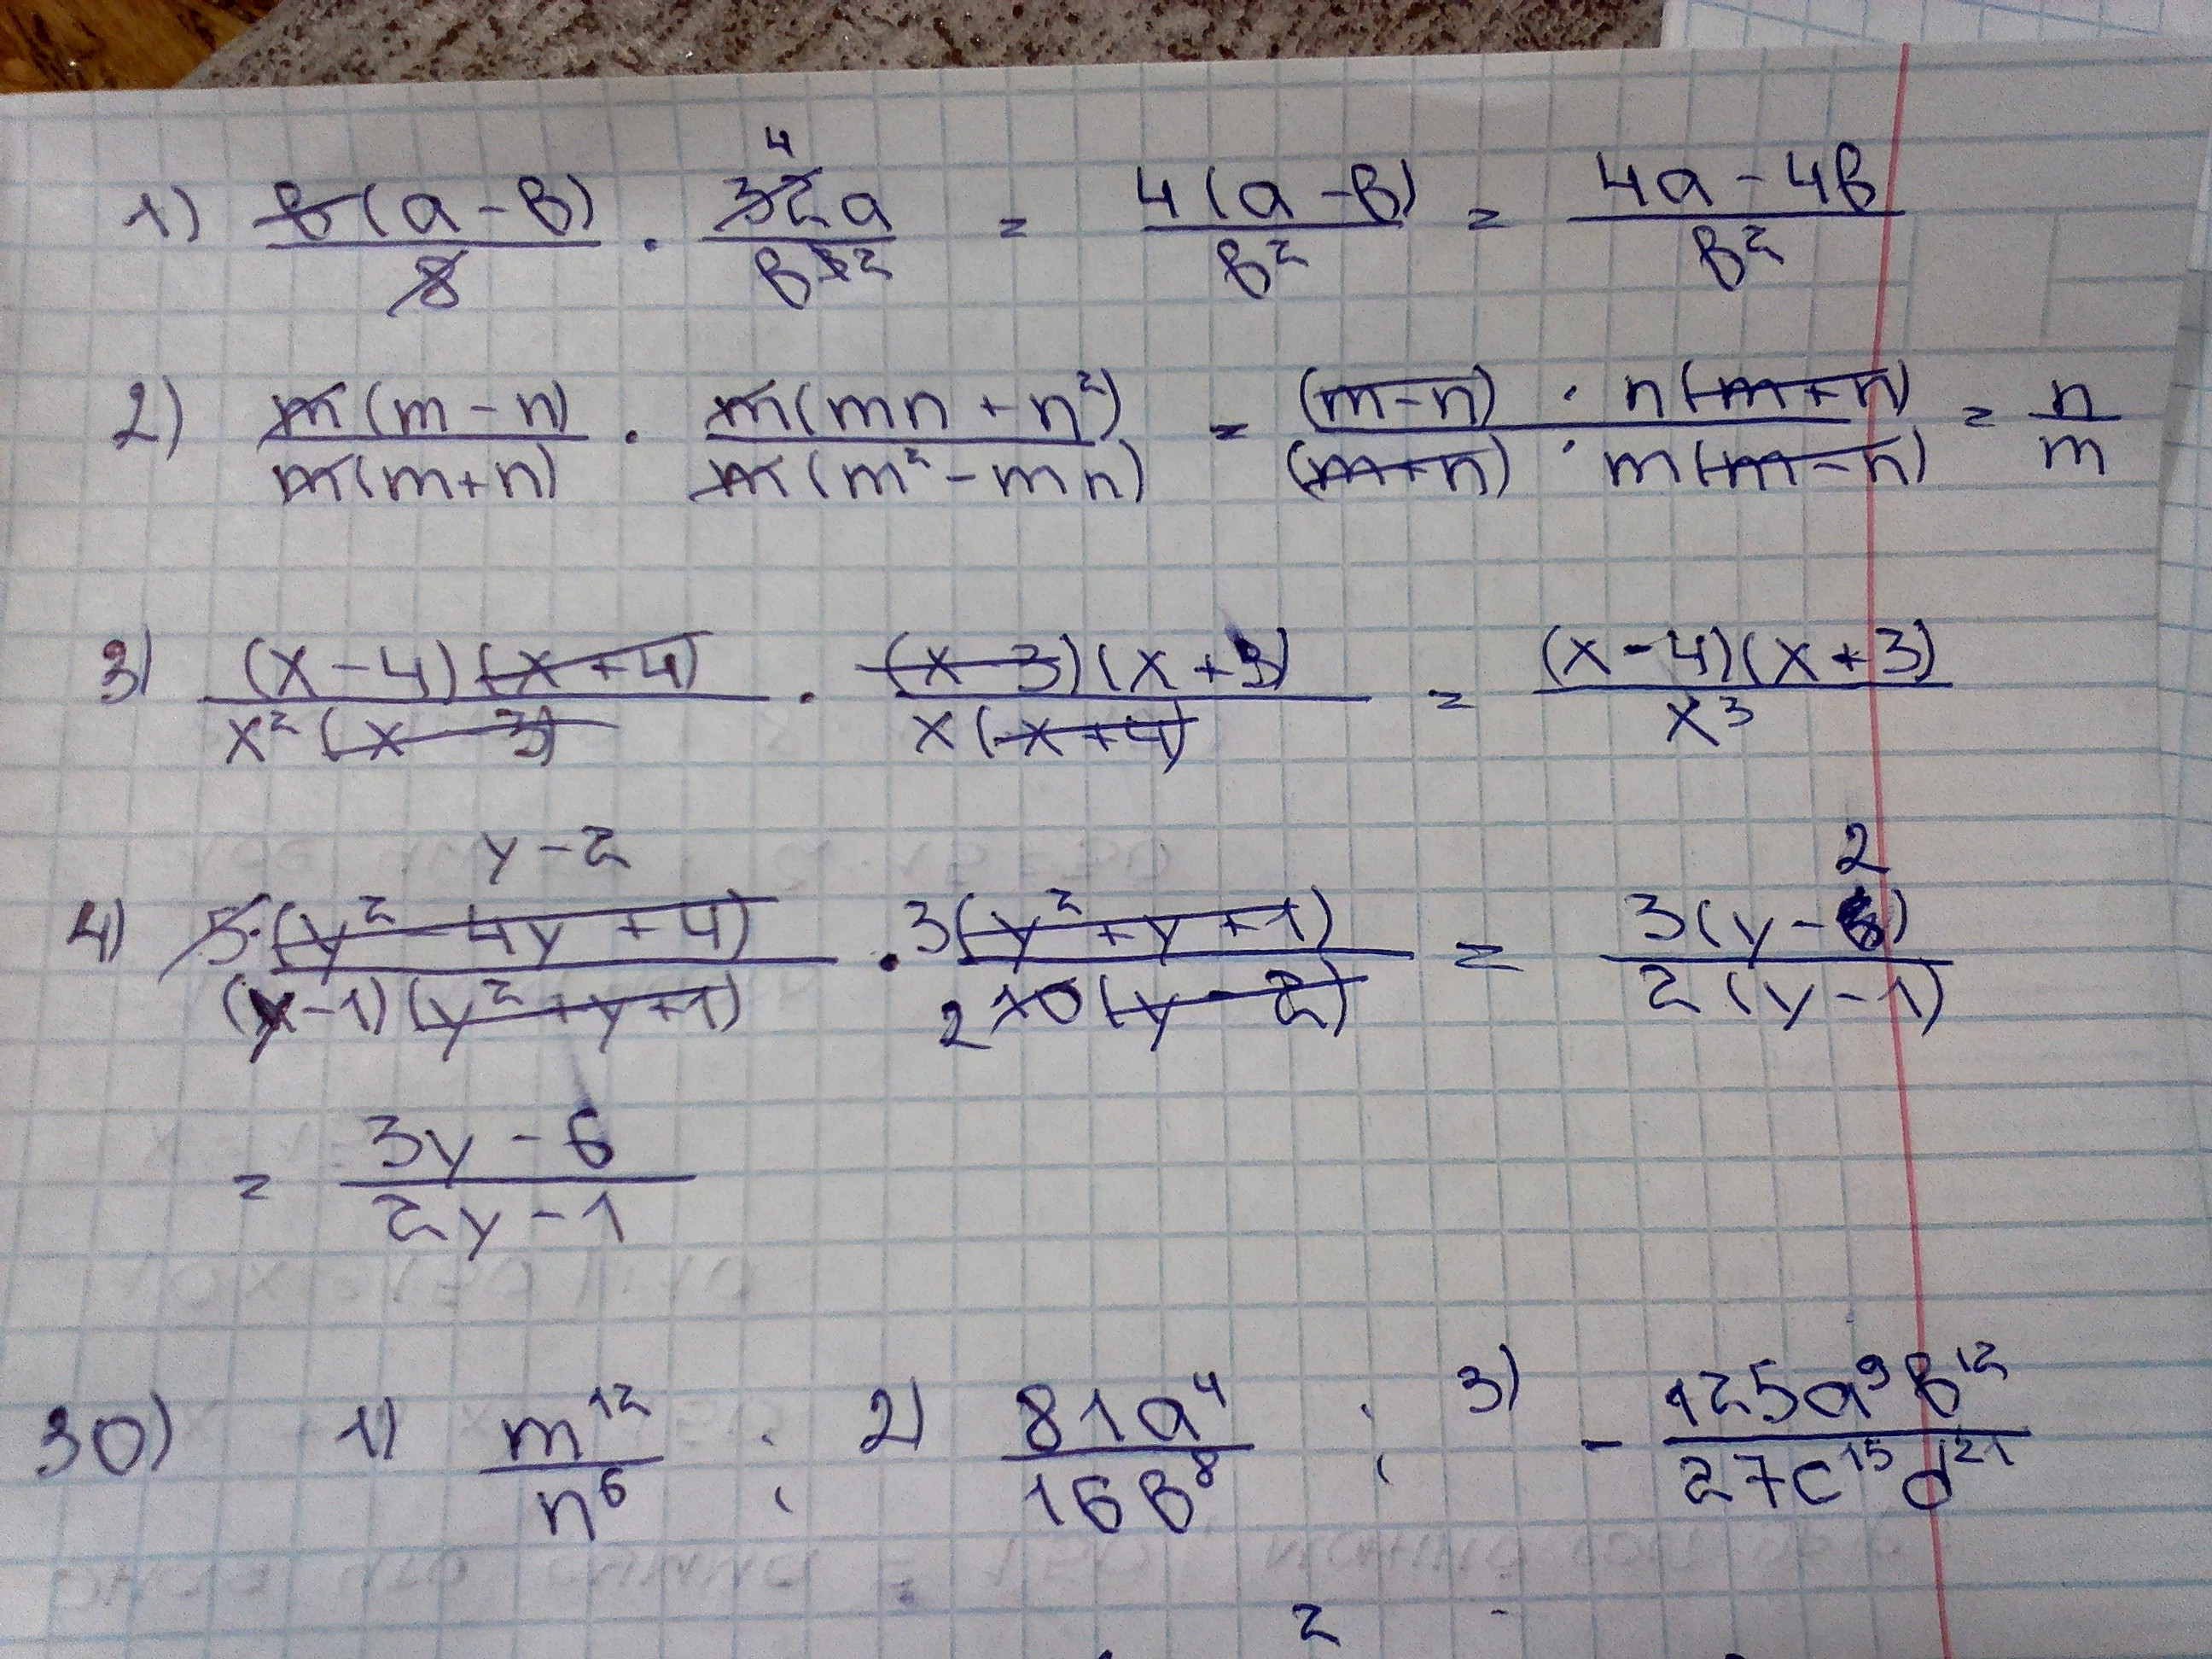 1) в(a-в)/8 · 32a/вв² (4) = 4(a-в)/в² = 4a-4в/в²
2) m(m-n)/m(m+n) · m(mn+n²)/m(m²-mn) = (m-n) · n(m+n)/(m+n) · m(m-n) = n/m
3) (x-4)(x+4)/x²(x-3) · (x-3)(x+3)/x(x+4) = (x-4)(x+3)/x³
y-2
4) 5·(y²-4y+4)/(y-1)(y²+y+1) · 3(y²+y+1)/2 10(y-2) = 3(y-2)/2(y-1)
= 3y-6/2y-1
30) 1) m¹²/n⁶ ; 2) 81a⁴/16в⁸ ; 3) - 125a⁹в¹²/27c¹⁵d²¹
2